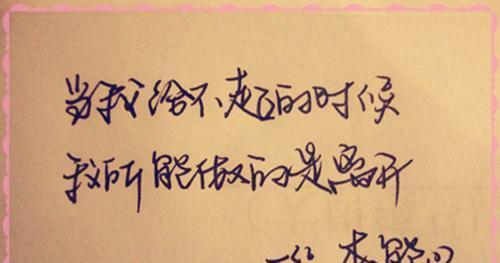 当我给不起的时候
我所能做的是离开